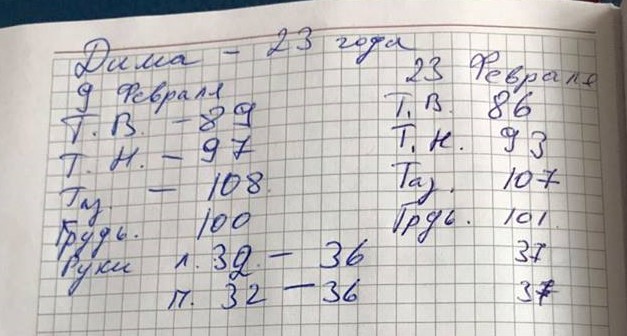 Дима - 23 года
9 Февраля 23 Февраля
Т. В. - 89 Т. В. 86
Т. Н. - 97 Т. Н. 93
Таз. - 108. Таз. 107
Грудь. 100 Грдь. 101.
Руки л. 32 - 36 37
п. 32 - 36 37